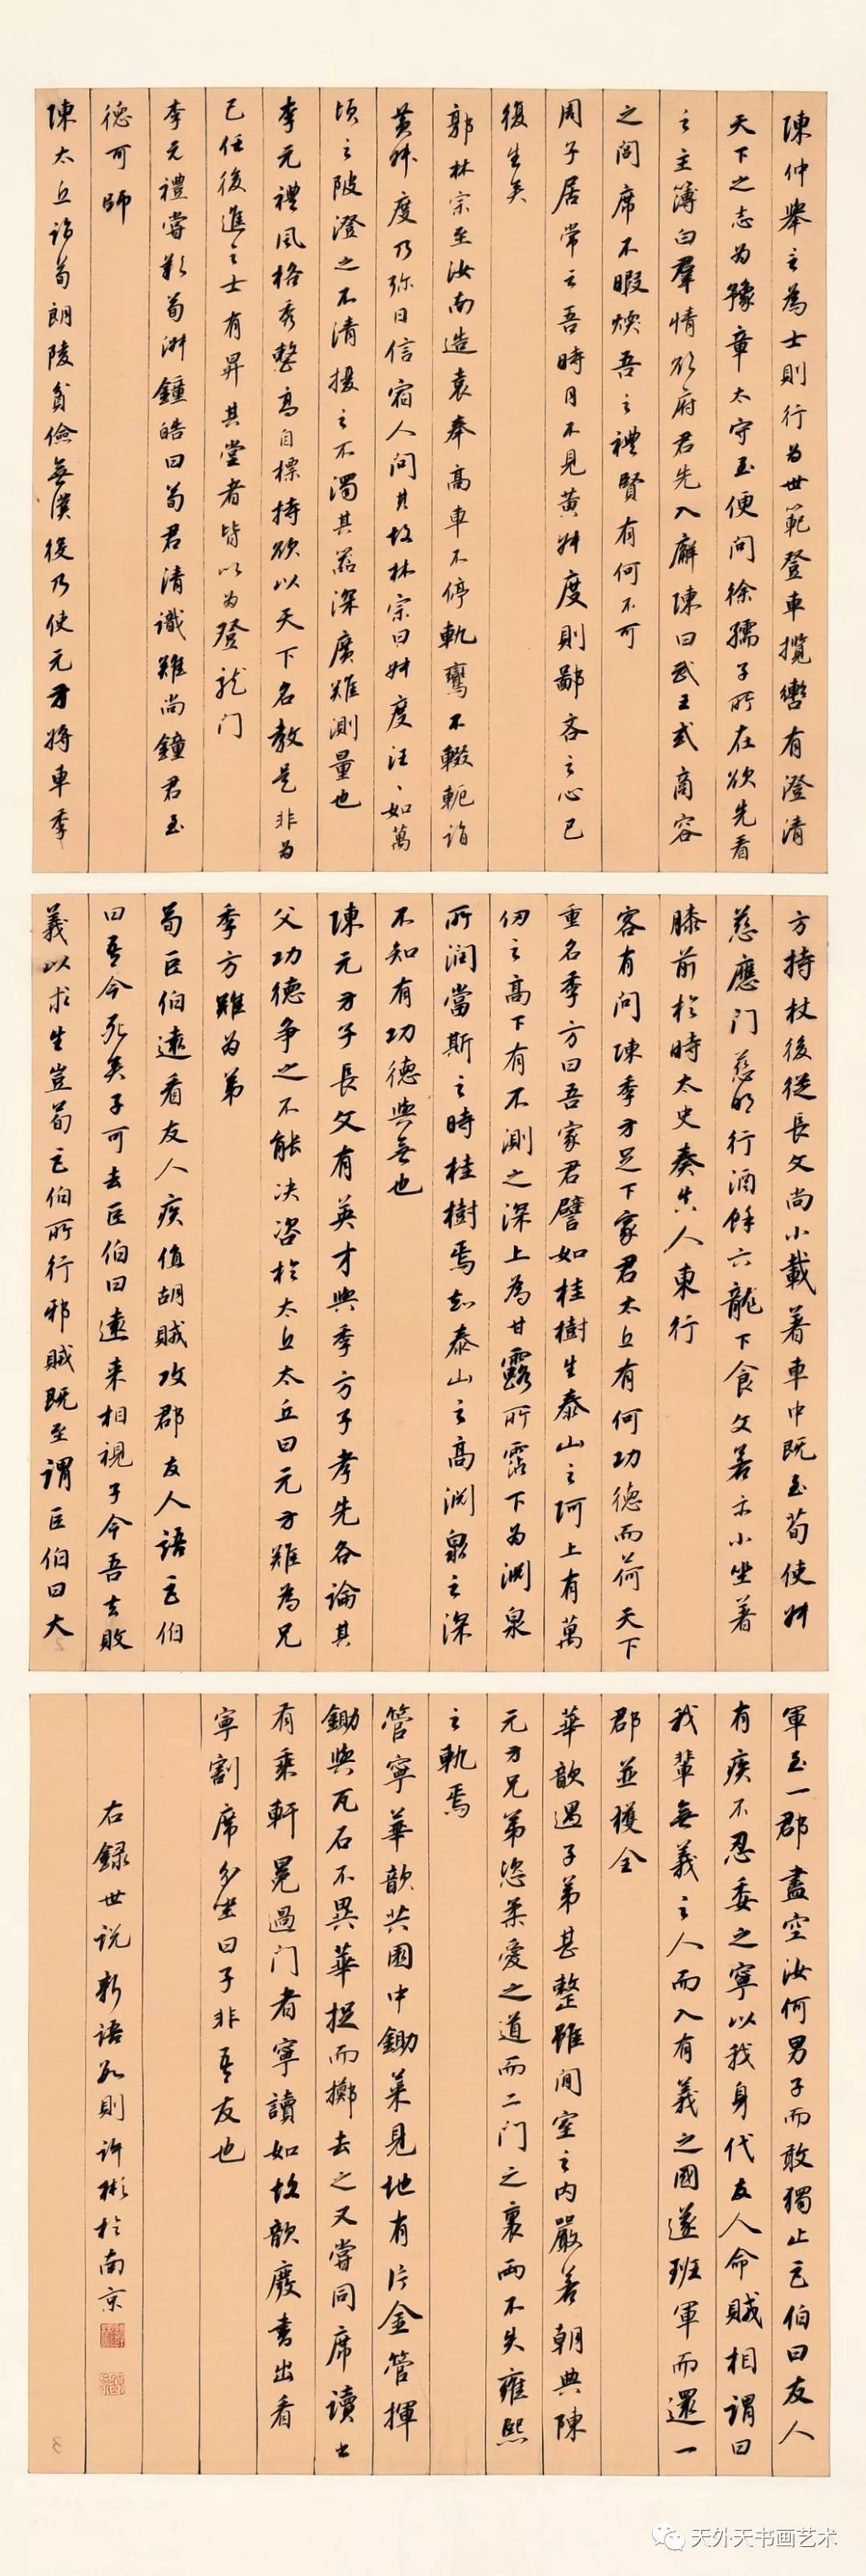 陳仲舉言為士則行為世範登車攬轡有澄清
天下之志為豫章太守至便問徐孺子所在欲先看
之主簿白羣情欲府君先入廨陳曰武王式商容
之閭席不暇煖吾之禮賢有何不可
周子居常云吾時月不見黃叔度則鄙吝之心已
復生矣
郭林宗至汝南造袁奉高車不停軌鸞不輟軛詣
黃叔度乃弥日信宿人問其故林宗曰叔度汪、如萬
頃之陂澄之不清擾之不濁其器深廣難測量也
李元禮風格秀整高自標持欲以天下名教是非為
己任後進之士有昇其堂者皆以為登龍门
李元禮嘗歎荀淑鍾皓曰荀君清識難尚鍾君至
德可師
陳太丘詣荀朗陵貧儉無僕役乃使元方將車季
方持杖後從長文尚小載著車中既至荀使叔
慈應门慈明行酒餘六龍下食文若亦小坐著
膝前於時太史奏真人東行
客有問陳季方足下家君太丘有何功德而荷天下
重名季方曰吾家君譬如桂樹生泰山之阿上有萬
仞之高下有不測之深上為甘露所霑下為淵泉
所润當斯之時桂樹焉知泰山之高淵泉之深
不知有功德與無也
陳元方子長文有英才與季方子孝先各論其
父功德争之不能决咨於太丘太丘曰元方難為兄
季方難為弟
荀巨伯遠看友人疾值胡賊攻郡友人語巨伯
曰吾今死矣子可去巨伯曰遠来相視子令吾去敗
義以求生豈荀巨伯所行邪賊既至謂巨伯曰大
軍至一郡盡空汝何男子而敢獨止巨伯曰友人
有疾不忍委之寧以我身代友人命賊相謂曰
我輩無義之人而入有義之國遂班軍而還一
郡並獲全
華歆遇子弟甚整雖閒室之內嚴若朝典陳
元方兄弟恣柔愛之道而二门之裏兩不失雍熙
之軌焉
管寧華歆共園中鋤菜見地有片金管揮
鋤與瓦石不異華捉而擲去之又嘗同席讀书
有乘軒冕過门者寧讀如故歆廢書出看
寧割席分坐曰子非吾友也
右録世说新语数則许彬於南京
3
天外天书画艺术